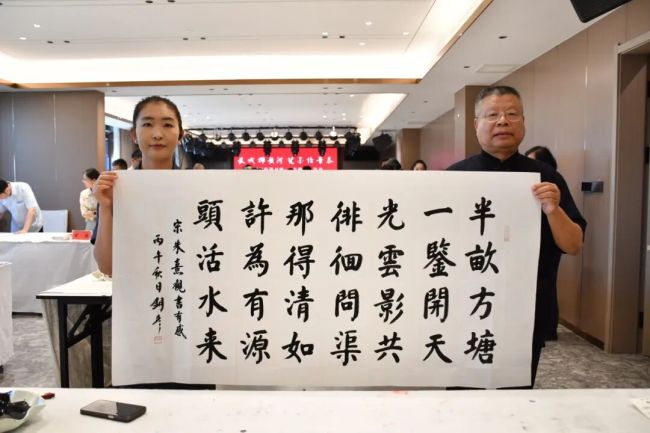 半畝方塘
一鑒開天
光雲影共
徘徊問渠
那得清如
許為有源
頭活水来
宋朱熹觀書有感
丙午秋日